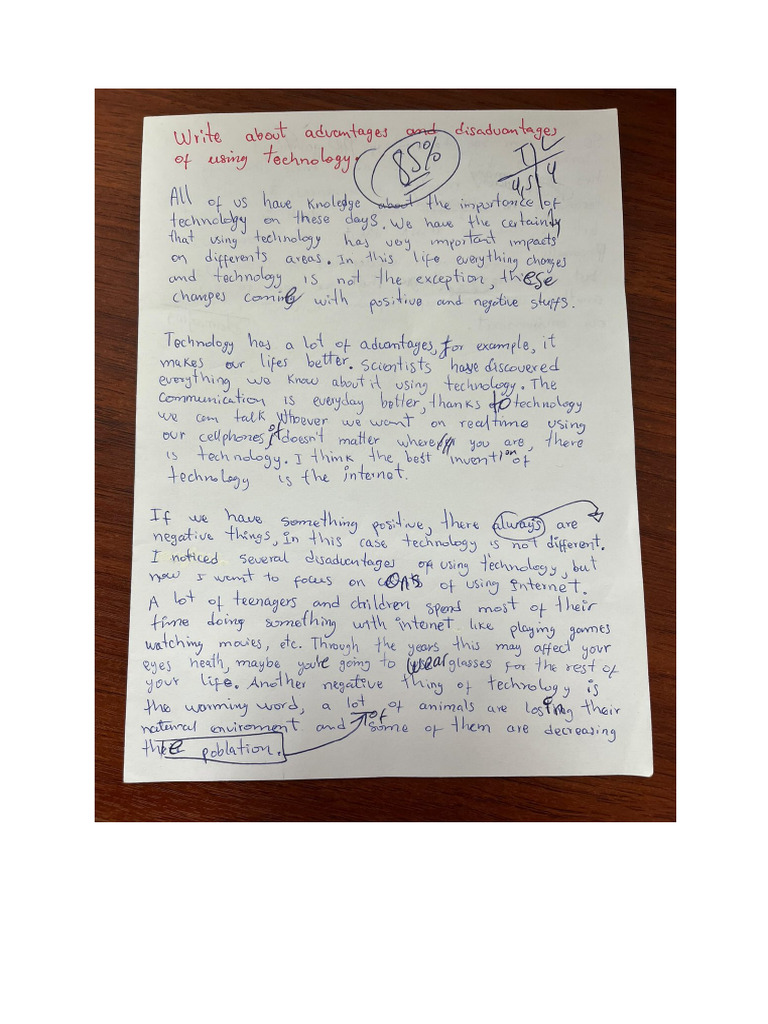 Write about advantages and disadvantages
of using technology.
85%
T L
4,5 4
All of us have Knoledge about the importance of
technology on these days. We have the certainty
that using technology has very important impacts
on differents areas. In this life everything changes
and technology is not the exception, these
changes come with positive and negative stuffs.
Technology has a lot of advantages, for example, it
makes our lifes better. Scientists have discovered
everything we know about it using technology. The
communication is everyday better, thanks to technology
we can talk whoever we want on realtime using
our cellphones, it doesn't matter where you are, there
is technology. I think the best invention of
technology is the internet.
If we have something positive, there always are
negative things, in this case technology is not different.
I noticed several disadvantages of using technology, but
now I want to focus on cons of using internet.
A lot of teenagers and children spend most of their
time doing something with internet like playing games
watching movies, etc. Through the years this may affect your
eyes heath, maybe you're going to wear glasses for the rest of
your life. Another negative thing of technology is
the warming word, a lot of animals are losing their
natural enviroment and some of them are decreasing
the poblation.